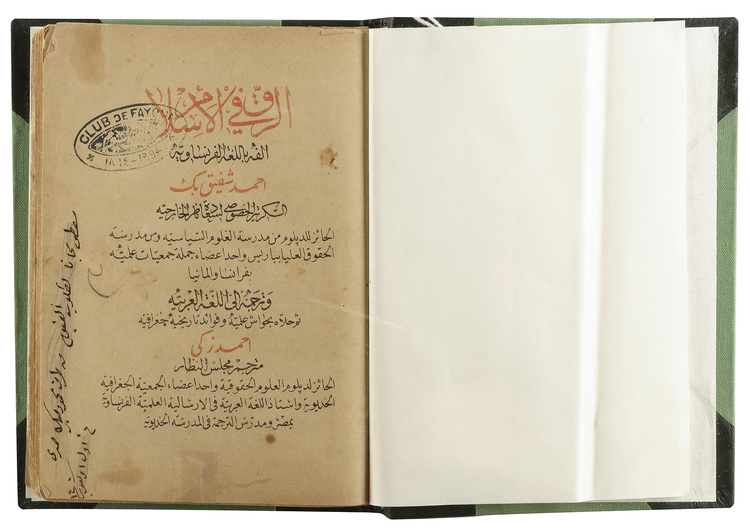 الرق في الاسلام
الفه باللغة الفرنساوية
احمد شفيق بك
السكرتير الخصوصي لسعادة ناظر الخارجيه
الحائز للدبلوم من مدرسة العلوم السياسيه ومن مدرسة
الحقوق العليا بباريس واحد اعضاء جملة جمعيات علميه
بفرانسا والمانيا
وترجمه الى اللغة العربيه
ثم حلاه بحواش علميه وفوائد تاريخية جغرافيه
احمد زكي
مترجم مجلس النظار
الحائز لدبلوم العلوم الحقوقية واحد اعضاء الجمعية الجغرافية
الخديوية واستاذ اللغة العربية في الارسالية العلمية الفرنساوية
بمصر ومدرس الترجمة في المدرسة الخديوية
CLUB DE FAYOUM